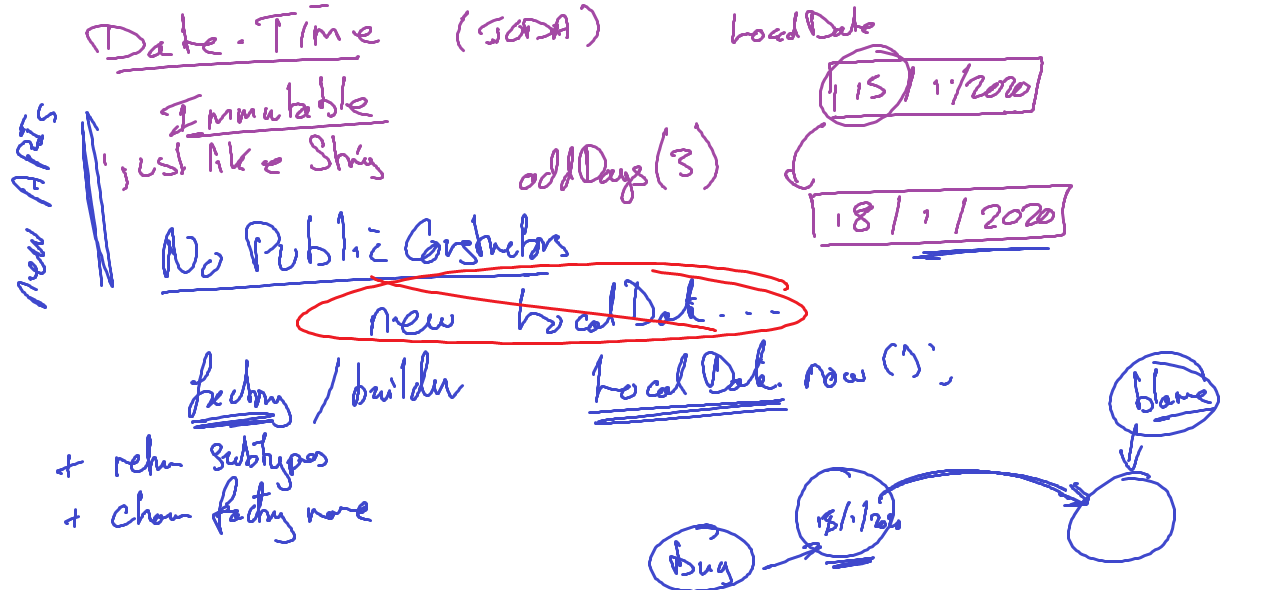 Date.Time (JODA) LocalDate
15 / 1/2020
Immutable
just like String
addDays(3)
18 / 1 / 2020
new APIs
No Public Constructors
new LocalDate...
factory / builder LocalDate. now();
blame
+ return subtypes
+ factory name
18/1/2020
Bug